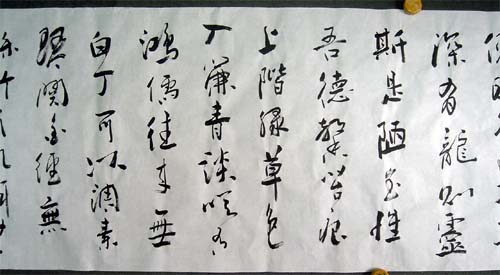 深有龍則靈
斯是陋室惟
吾德馨苔痕
上階綠草色
入簾青談笑有
鴻儒往來無
白丁可以調素
琴閱金經無